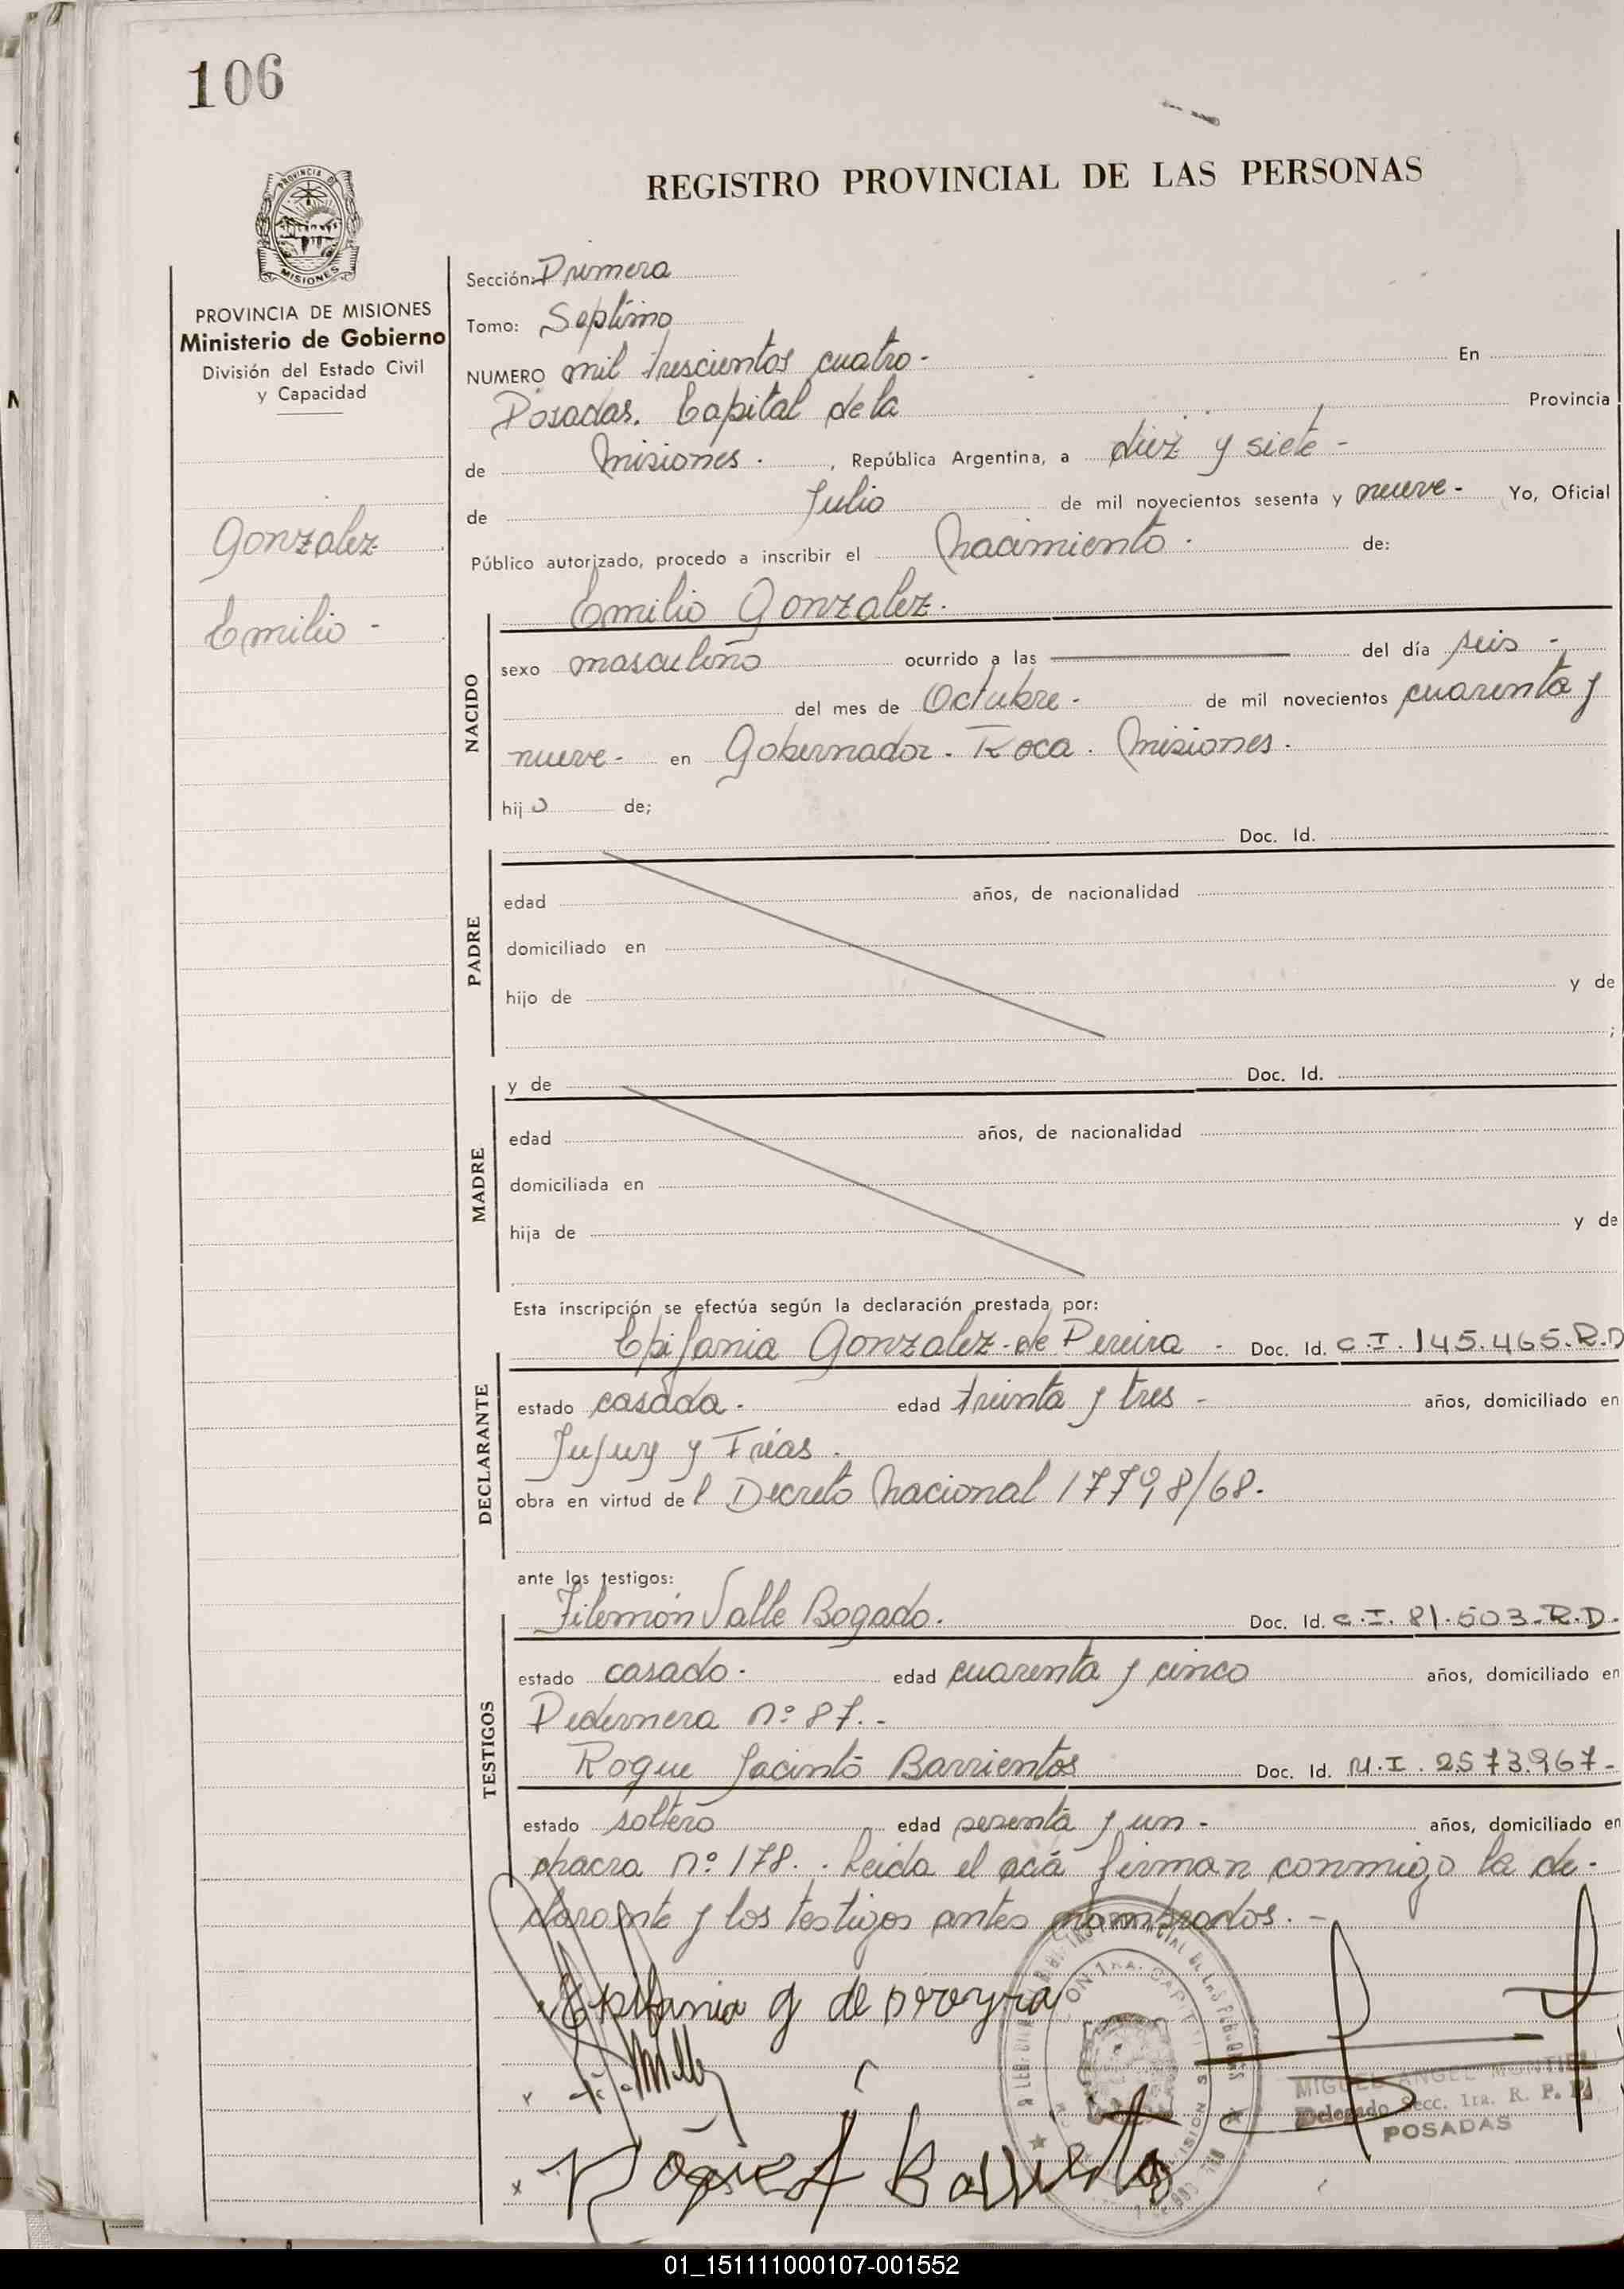 106
REGISTRO PROVINCIAL DE LAS PERSONAS
PROVINCIA DE MISIONES
Ministerio de Gobierno
División del Estado Civil
y Capacidad
Gonzalez
Emilio -
Sección: Primera
Tomo: Septimo
NUMERO mil trescientos cuatro - En
Posadas. Capital de la Provincia
de Misiones. , República Argentina, a diez y siete -
de Julio de mil novecientos sesenta y nueve - Yo, Oficial
Público autorizado, procedo a inscribir el Nacimiento. de:
Emilio Gonzalez.
NACIDO
sexo masculino ocurrido a las del día seis -
del mes de Octubre - de mil novecientos cuarenta y
nueve - en Gobernador. Roca. Misiones.
hijo de;
Doc. Id.
PADRE
edad años, de nacionalidad
domiciliado en
hijo de y de
;
y de Doc. Id.
MADRE
edad años, de nacionalidad
domiciliada en
hija de y de
Esta inscripción se efectúa según la declaración prestada por:
Epifania Gonzalez de Pereira - Doc. Id. C.I. 145.465.R.D
DECLARANTE
estado casada. edad treinta y tres - años, domiciliado en
Jujuy y Frias.
obra en virtud del Decreto Nacional 17798/68.
ante los testigos:
Filemón Valle Bogado. Doc. Id. C.I. 81.503.R.D.
TESTIGOS
estado casado. edad cuarenta y cinco años, domiciliado en
Pedernera nº 87. -
Roque Jacinto Barrientos Doc. Id. M.I. 2573.967-
estado soltero edad sesenta y un - años, domiciliado en
chacra nº 178. Leida el acá firman conmigo la de-
clarante y los testigos antes nombrados. -
Epifania g de pereyra
MIGUEL ANGEL MONTIEL
Delegado Secc. 1ra. R. P. P.
POSADAS
Roque J Barrientos
01_151111000107-001552